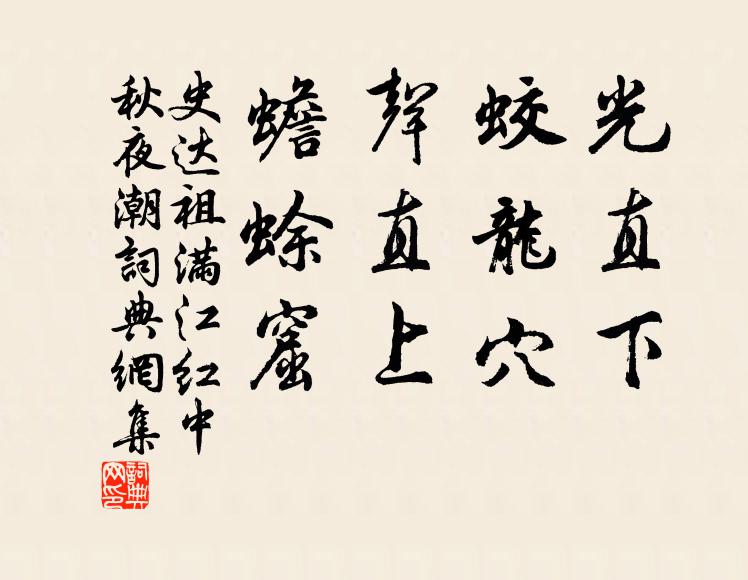 光直下
蛟龍穴
聲直上
蟾蜍窟
史达祖满江红中
秋夜潮詞典網集
詞典
网印